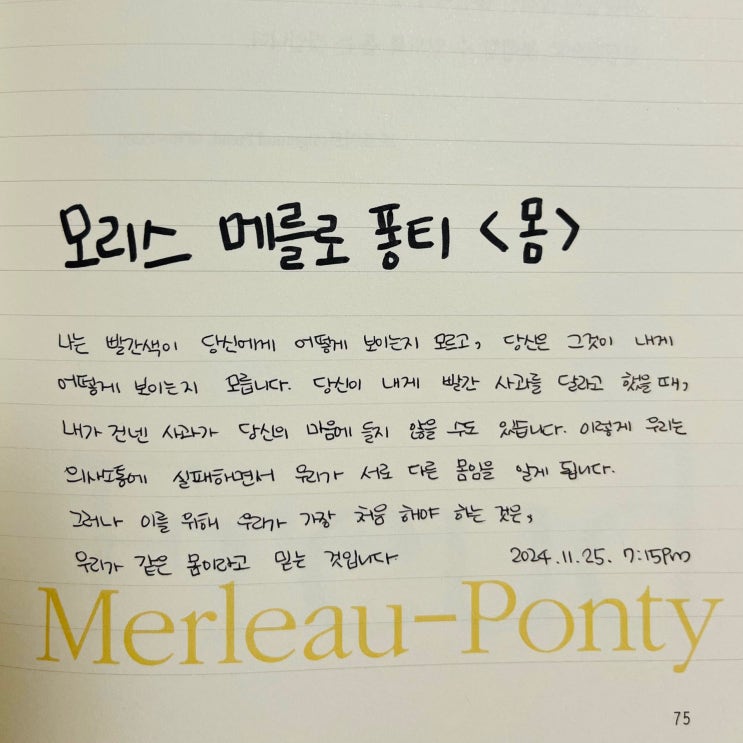 모리스 메를로 퐁티 <몸>
나는 빨간색이 당신에게 어떻게 보이는지 모르고, 당신은 그것이 내게
어떻게 보이는지 모릅니다. 당신이 내게 빨간 사과를 달라고 했을 때,
내가 건넨 사과가 당신의 마음에 들지 않을 수도 있습니다. 이렇게 우리는
의사소통에 실패하면서 우리가 서로 다른 몸임을 알게 됩니다.
그러나 이를 위해 우리가 가장 처음 해야 하는 것은,
우리가 같은 몸이라고 믿는 것입니다 2024.11.25. 7:15pm
Merleau-Ponty
75